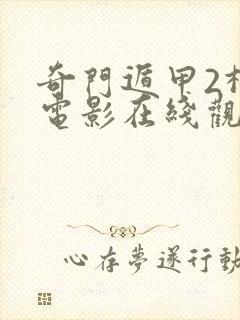 奇門遁甲2
電影在綫觀
心存夢遂行動